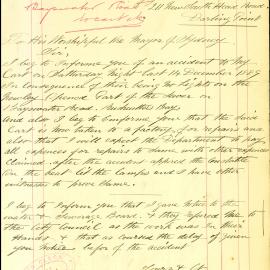 211 New South Head Road
Bayswater Road
Darling Point
To His Worshipful the Mayor of Sydney
Sir,
I beg to Inform you of an accident to my
Cart on Saturday Night last 14 December 1889
In Consequence of there being No Lights on the
Cart of the Sewer in
Bayswater Road, Rushcutters Bay
And also I beg to Inform you that the said
Cart is now taken to a factory for repairs and
also that I will expect the Department to pay
all expences for repairs of same with other expences
Claimed after the accident
for the best let the lamps and I have other
witnesses to prove same.
I beg to Inform you that I gave notice to the
water & Sewerage Board & they refered me to
the City Council as the work was in their
Hands & that as caused the delay of given
you notice befor of the accident